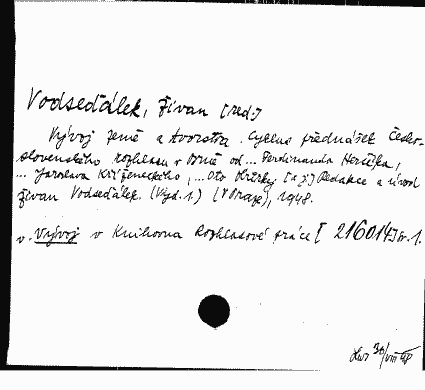 Vodseďálek, Živan [red.]
Vývoj země a tvorstva. Cyklus přednášek Česko-
slovenského rozhlasu v Brně od ... Ferdinanda Herčíka,
... Jaroslava Kříženeckého, ... Oto [a j.] Redakce a úvod
Živan Vodseďálek. (Vyd. 1.) (V Praze), 1948.
v. Vývoj v Knihovna Rozhlasové práce [216014] sv. 1.
30/VIII 48